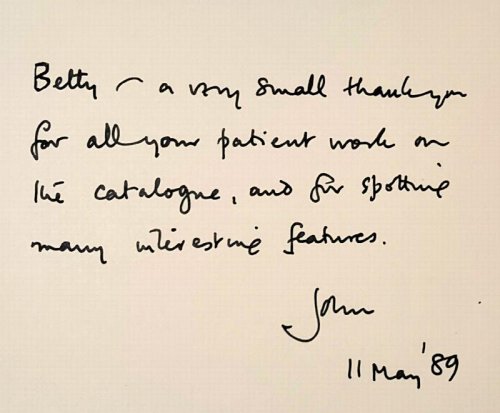 Betty – a very small thankyou
for all your patient work on
the catalogue, and for spotting
many interesting features.
John
11 May '89